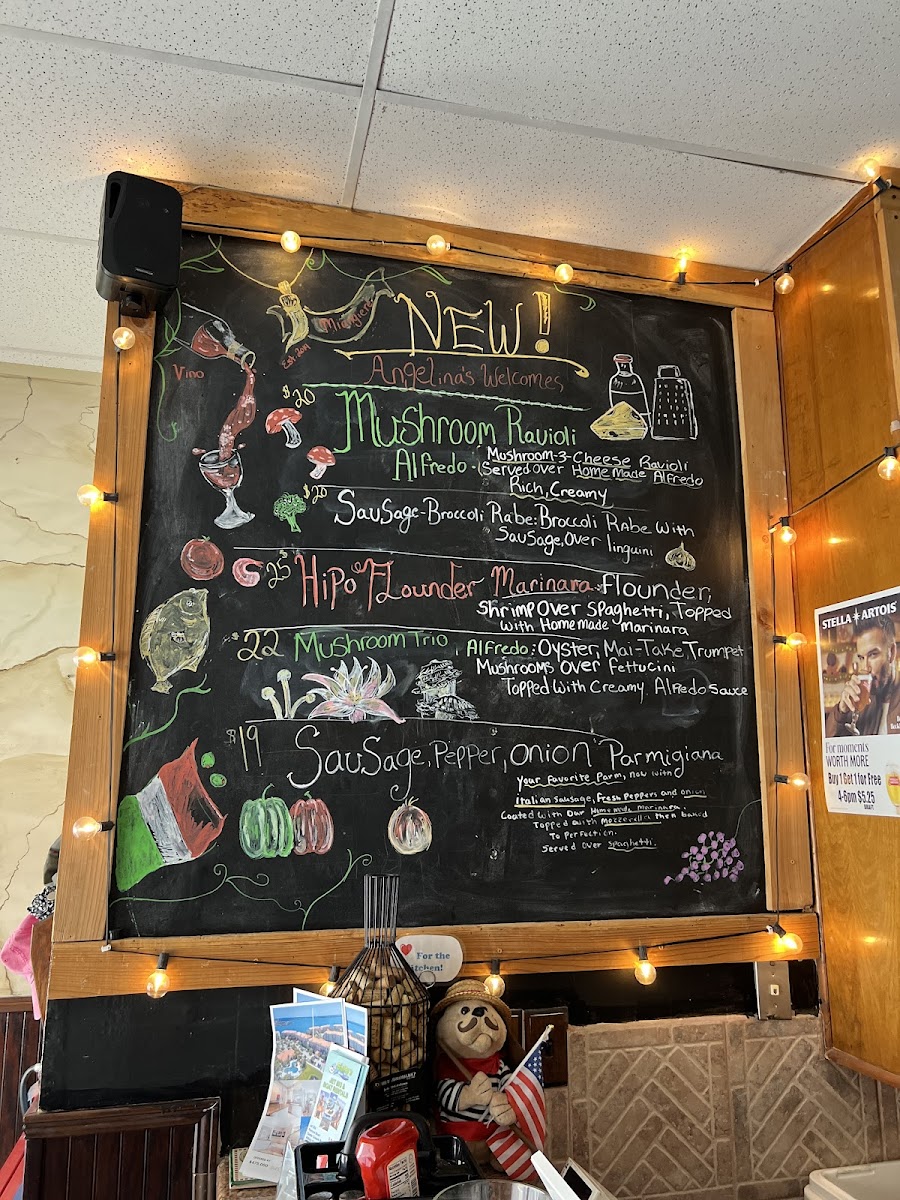 NEW!
Est. 2014
Angelina's Welcomes
Vino
$20
Mushroom Ravioli
Alfredo • Mushroom-3-Cheese Ravioli
Served over Home Made Alfredo
Rich, Creamy
$20
Sausage-Broccoli Rabe: Broccoli Rabe With
Sausage, Over linguini
$25 Hipo Flounder Marinara: Flounder,
Shrimp Over Spaghetti, Topped
With Homemade Marinara
$22 Mushroom Trio Alfredo: Oyster, Mai-Take, Trumpet
Mushrooms Over Fettucini
Topped With Creamy Alfredo Sauce
$19 Sausage, Pepper, Onion Parmigiana
Your Favorite Parm, Now with
Italian Sausage, Fresh Peppers and onion
Coated with Our Home Made Marinara.
Topped with Mozzerella then baked
To Perfection.
Served over Spaghetti.
STELLA ★ ARTOIS
For moments
WORTH MORE
Buy 1 Get 1 for Free
4-6pm $5.25
For the
Kitchen!